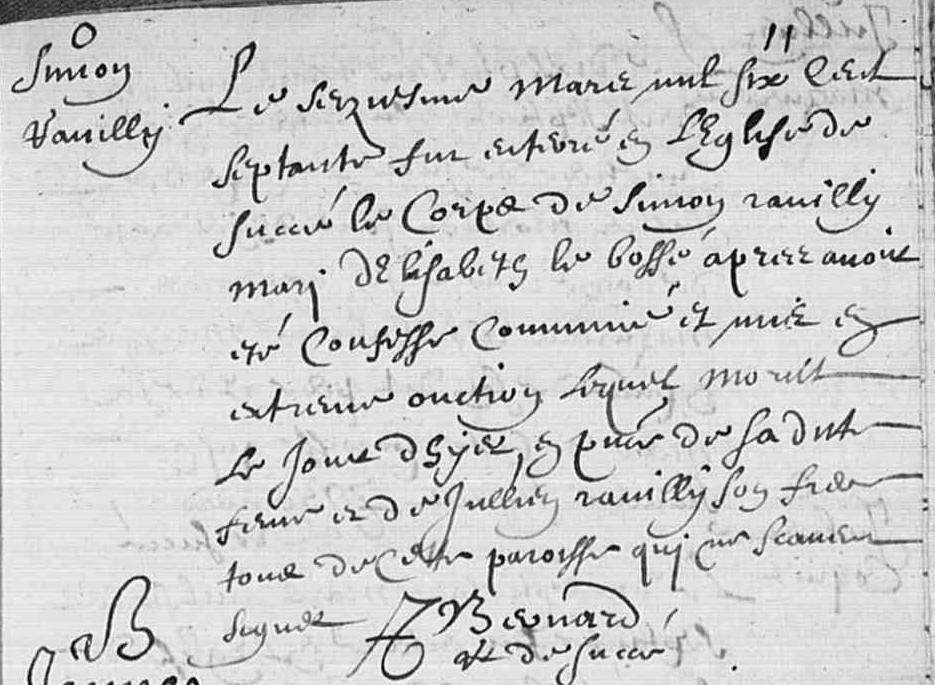 11
Simon
Rauilly
Le seziesme Mars mil six Cent
septante fut enterré en l'Eglise de
succé le Corps de Simon rauilly
mary d'Elisabeth le bossé apres auoir
eté Confessé Communié et mis en
extreme onction lequel mourut
Le Jour d'hyer, en pnce de sa dite
feme et de Jullien rauilly son frere
tous de Cette paroisse qui ne scauent
signer Bernard
de succé
B